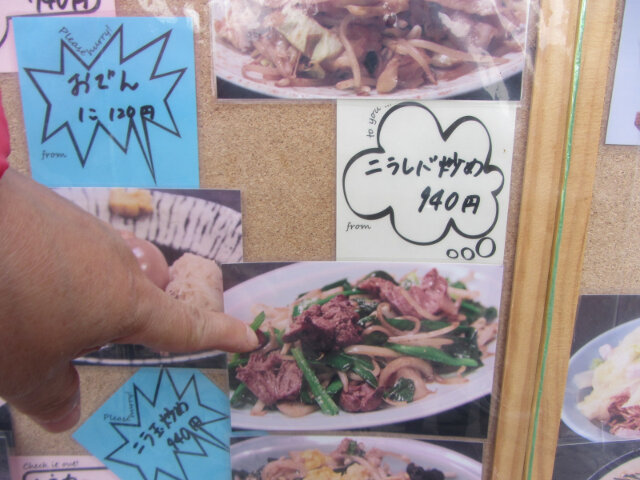 940円
Please hurry!
おでん
1こ 120円
from
to you...
ニラレバ炒め
940円
from
Please hurry!
ニラ玉炒め
940円
Check it out!